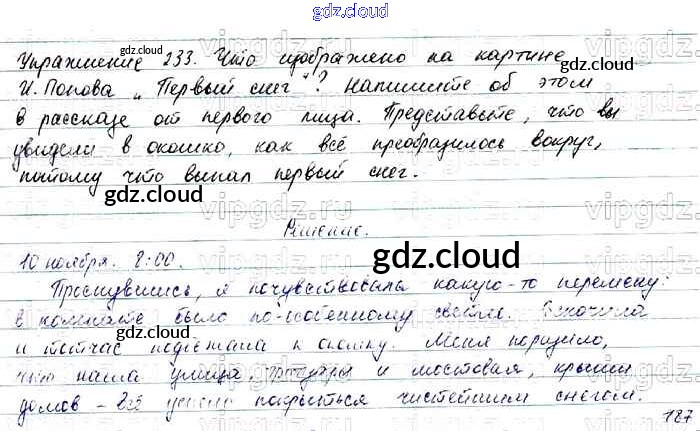 gdz.cloud
Упражнение 233. Что изображено на картине
И. Попова „Первый снег"? Напишите об этом
в рассказе от первого лица. Представьте, что вы
увидели в окошко, как всё преобразилось вокруг,
потому что выпал первый снег.
gdz.cloud
Решение.
10 ноября. 8:00.
gdz.cloud
Проснувшись, я почувствовала какую-то перемену:
в комнате было по-особенному светло. Вскочила
и тотчас подбежала к окошку. Меня поразило,
что наша улица, тротуары и мостовая, крыши
домов - всё успело покрыться чистейшим снегом.
187